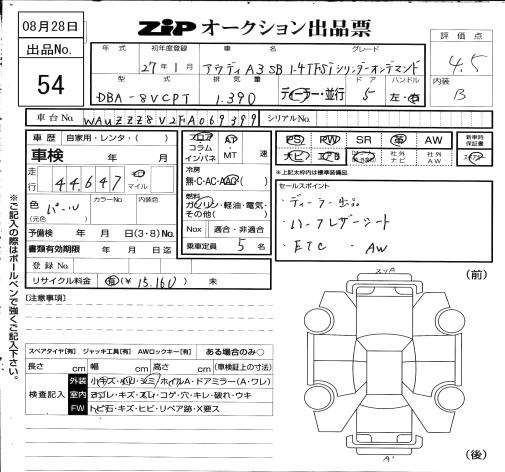 08月28日
出品No.
54
ZiP オークション出品票
評価点
4.5
内装
B
年式 初年度登録 車名 グレード
27年1月 アウディA3SB 1.4TFSiシリンダーオンデマンド
型式 排気量 ドア ハンドル
DBA-8VCPT 1.390 ディーラー・並行 5 左・右
車台No. WAUZZZ8V2FA069399 シリアルNo.
車歴 自家用・レンタ・( )
車検 年 月
走行 44,647 キロ マイル
色 (元色) パール カラーNo. 内装色
予備検 年 月 日(3・8)No.
書類有効期限 年 月 日迄
登録No.
リサイクル料金 有(¥ 15.160) 未
フロア コラム インパネ
AT・MT 速
冷房
無・C・AC・AAC
燃料
ガソリン・軽油・電気・その他( )
Nox 適合・非適合
乗車定員 5 名
PS PW SR 革 AW
ナビ エアB 社外ナビ 社外AW
新車時保証書
*上記太枠内は標準装備品
セールスポイント
・ディーラー
・ハーフレザーシート
・ETC ・AW
※ご記入の際はボールペンで強くご記入下さい。
(注意事項)
スペアタイヤ[有] ジャッキ工具[有] AWロックキー[有] ある場合のみ○
長さ cm 幅 cm 高さ cm (車検証上の寸法)
検査記入
外装 小キズ・小凹・シミ・ホイルA・ドアミラー(A・ワレ)
室内 ヨゴレ・キズ・スレ・コゲ・穴・キレ・破れ・ウキ
FW トビ石・キズ・ヒビ・リペア跡・X要ス
(前)
スリA
A'
(後)